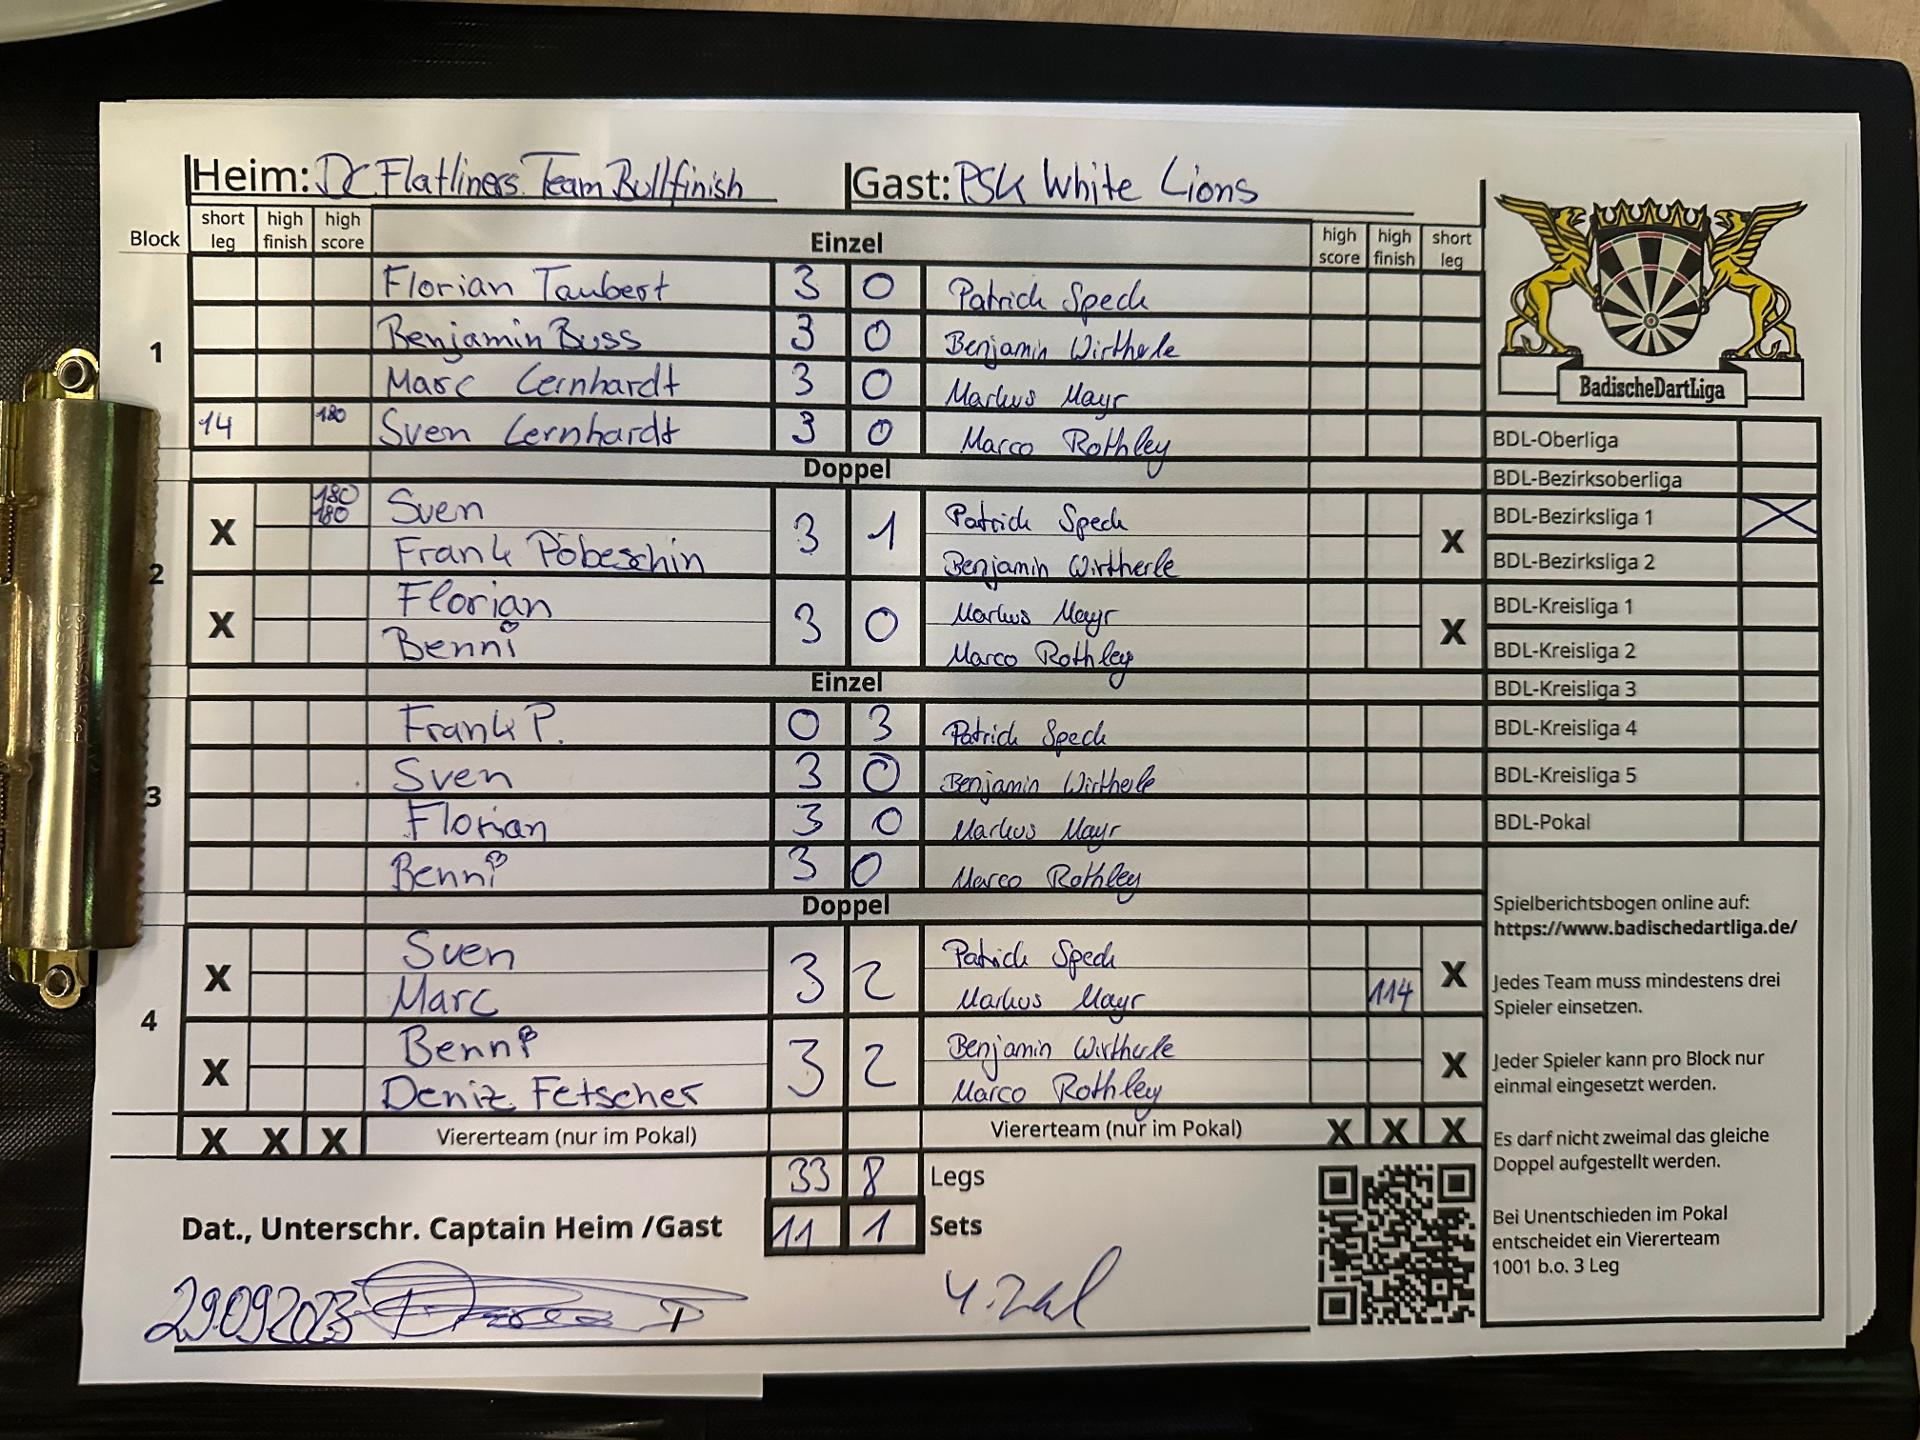 Heim: DC Flatliners Team Bullfinish Gast: PSK White Lions
Block short leg high finish high score Einzel high score high finish short leg
1
Florian Taubert 3 0 Patrick Speck
Benjamin Buss 3 0 Benjamin Wirtherle
Marc Lernhardt 3 0 Markus Mayr
14 180 Sven Lernhardt 3 0 Marco Rothley
Doppel
2
X 180 180 Sven 3 1 Patrick Speck X
Frank Pöbeschin Benjamin Wirtherle
X Florian 3 0 Markus Mayr X
Benni Marco Rothley
Einzel
3
Frank P. 0 3 Patrick Speck
Sven 3 0 Benjamin Wirtherle
Florian 3 0 Markus Mayr
Benni 3 0 Marco Rothley
Doppel
4
X Sven 3 2 Patrick Speck X
Marc Markus Mayr 114
X Benni 3 2 Benjamin Wirtherle X
Deniz Fetscher Marco Rothley
X X X Viererteam (nur im Pokal) Viererteam (nur im Pokal) X X X
33 8 Legs
Dat., Unterschr. Captain Heim /Gast 11 1 Sets
29.09.2023
BadischeDartLiga
BDL-Oberliga
BDL-Bezirksoberliga
BDL-Bezirksliga 1 X
BDL-Bezirksliga 2
BDL-Kreisliga 1
BDL-Kreisliga 2
BDL-Kreisliga 3
BDL-Kreisliga 4
BDL-Kreisliga 5
BDL-Pokal
Spielberichtsbogen online auf:
https://www.badischedartliga.de/
Jedes Team muss mindestens drei
Spieler einsetzen.
Jeder Spieler kann pro Block nur
einmal eingesetzt werden.
Es darf nicht zweimal das gleiche
Doppel aufgestellt werden.
Bei Unentschieden im Pokal
entscheidet ein Viererteam
1001 b.o. 3 Leg